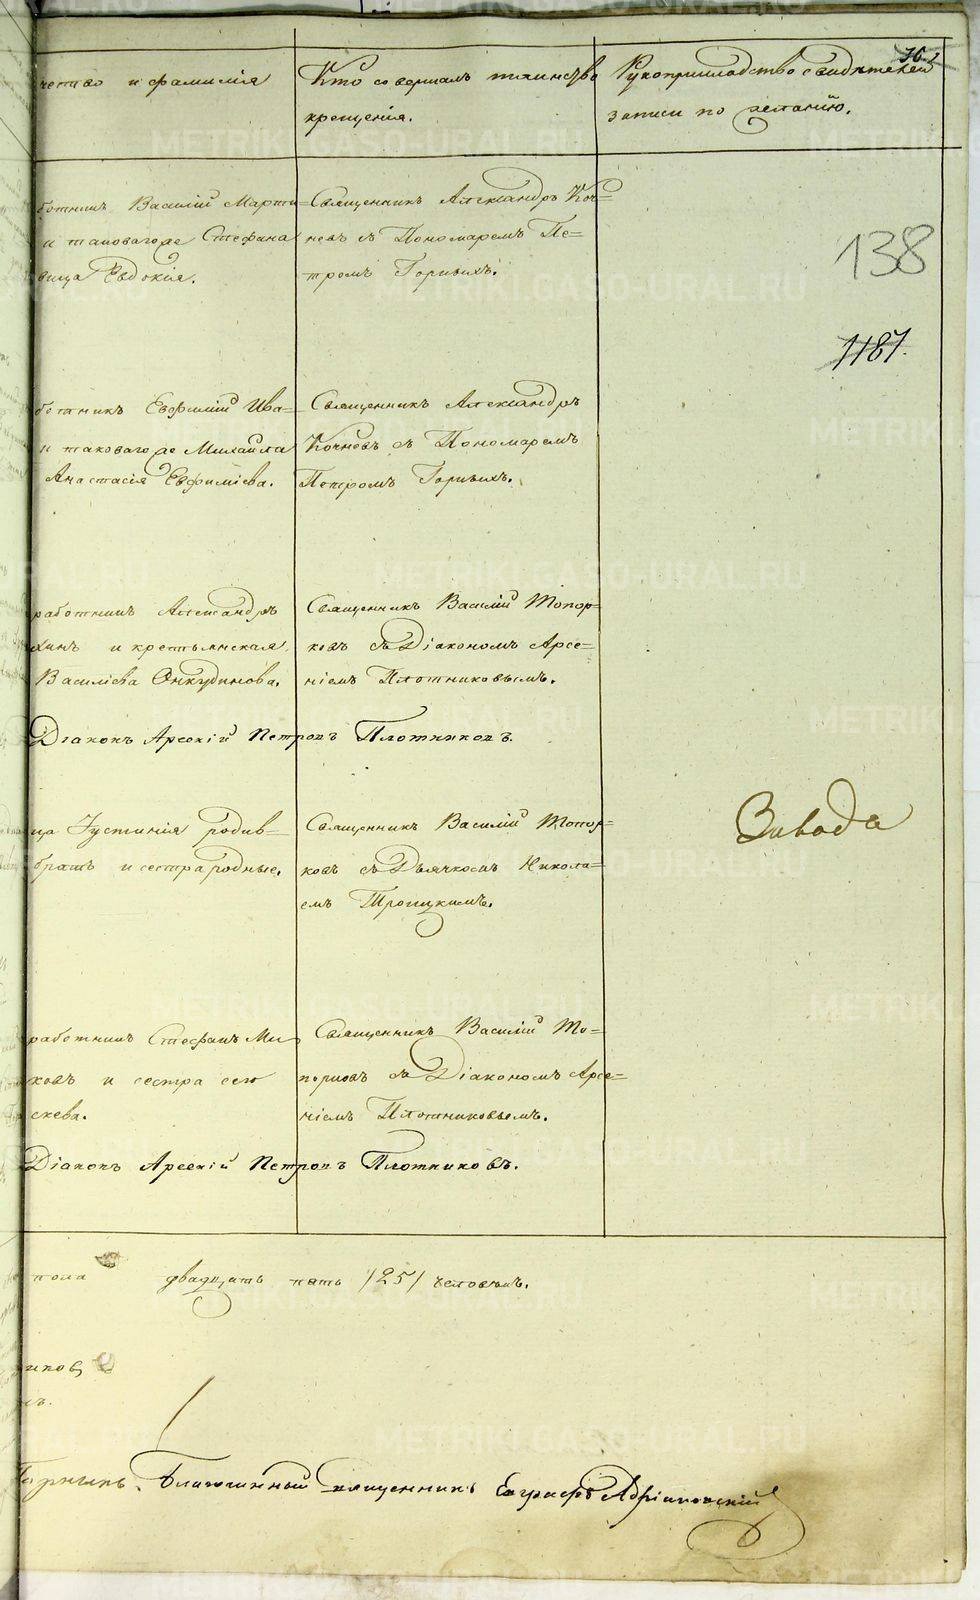 чество и фамилія
Кто совершалъ таинство
крещенія.
Рукоприкладство свидѣтелей
записи по желанію.
138
1187.
ботникъ Василій Марти=
и таковагоже Стефана
вица Евдокія.
Священникъ Александръ Коч=
невъ съ Пономаремъ Пе=
тромъ Горныхъ.
ботникъ Евфимій Ива=
и таковагоже Михаила
Анастасія Евфиміева.
Священникъ Александръ
Кочневъ съ Пономаремъ
Петромъ Горныхъ.
работникъ Александръ
хинъ и крестьянская
Василіева Онкудинова.
Священникъ Василій Топор=
ковъ съ Діакономъ Арсе=
ніемъ Плотниковымъ.
Діаконъ Арсеній Петровъ Плотниковъ.
ца Іустинія родив=
братъ и сестра родные.
Священникъ Василій Топор=
ковъ съ Дьячкомъ Никола=
емъ Троицкимъ.
Завода
работникъ Стефанъ Ми
ковъ и сестра его
сѣева.
Священникъ Василій То=
порковъ съ Діакономъ Арсе=
ніемъ Плотниковымъ.
Діаконъ Арсеній Петровъ Плотниковъ.
пола двадцать пять /25/ человѣкъ.
иковъ
Благочинный Священникъ Евграфъ Адріановскій
METRIKI.GASO-URAL.RU